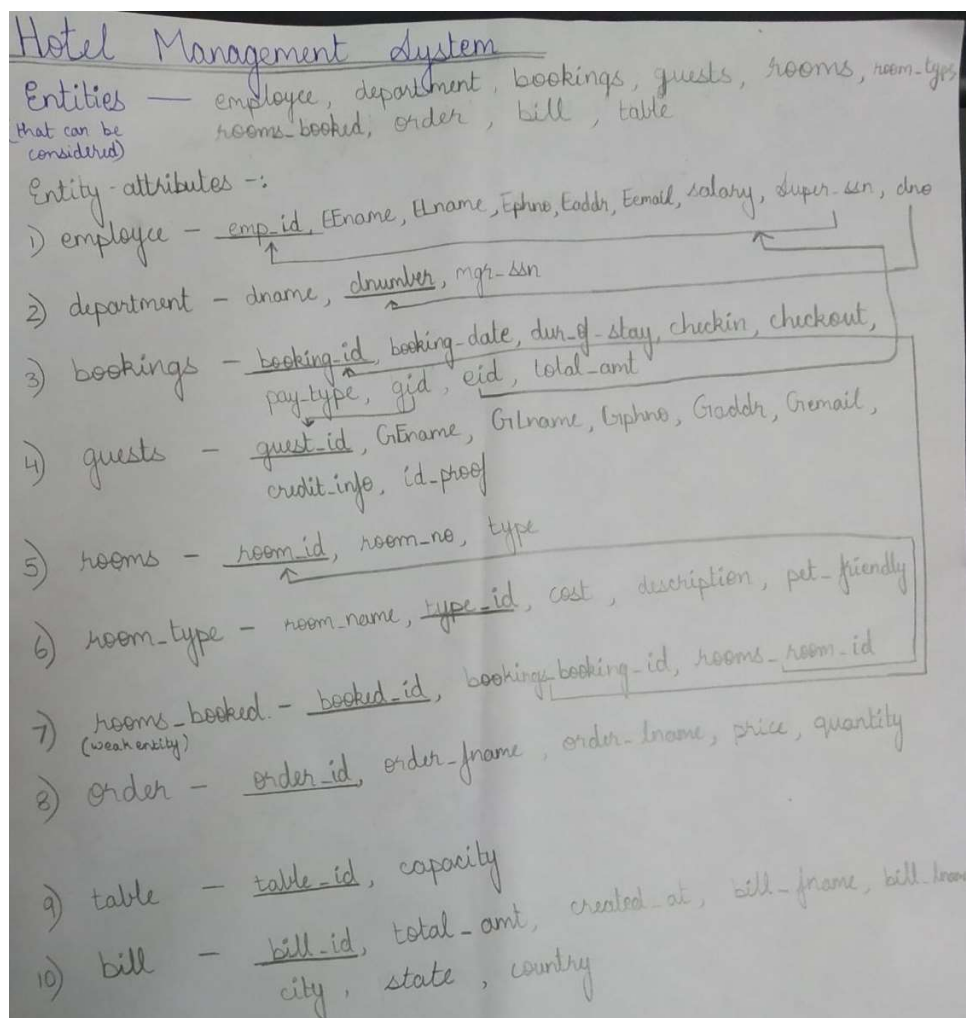 Hotel Management System
Entities — employee, department, bookings, guests, rooms, room-type
(that can be considered) rooms-booked, order, bill, table
Entity-attributes -:
1) employee - emp-id, EFname, ELname, Ephno, Eaddr, Eemail, salary, super-ssn, dno
2) department - dname, dnumber, mgr-ssn
3) bookings - booking-id, booking-date, dur-of-stay, checkin, checkout,
pay-type, gid, eid, total_amt
4) guests - guest-id, GFname, GLname, Gphno, Gaddr, Gemail,
credit-info, id-proof
5) rooms - room-id, room-no, type
6) room-type - room-name, type-id, cost, description, pet-friendly
7) rooms-booked - booked-id, bookings-booking-id, rooms-room-id
(weak entity)
8) order - order-id, order-fname, order-lname, price, quantity
9) table - table-id, capacity
10) bill - bill-id, total-amt, created-at, bill-fname,
city, state, country